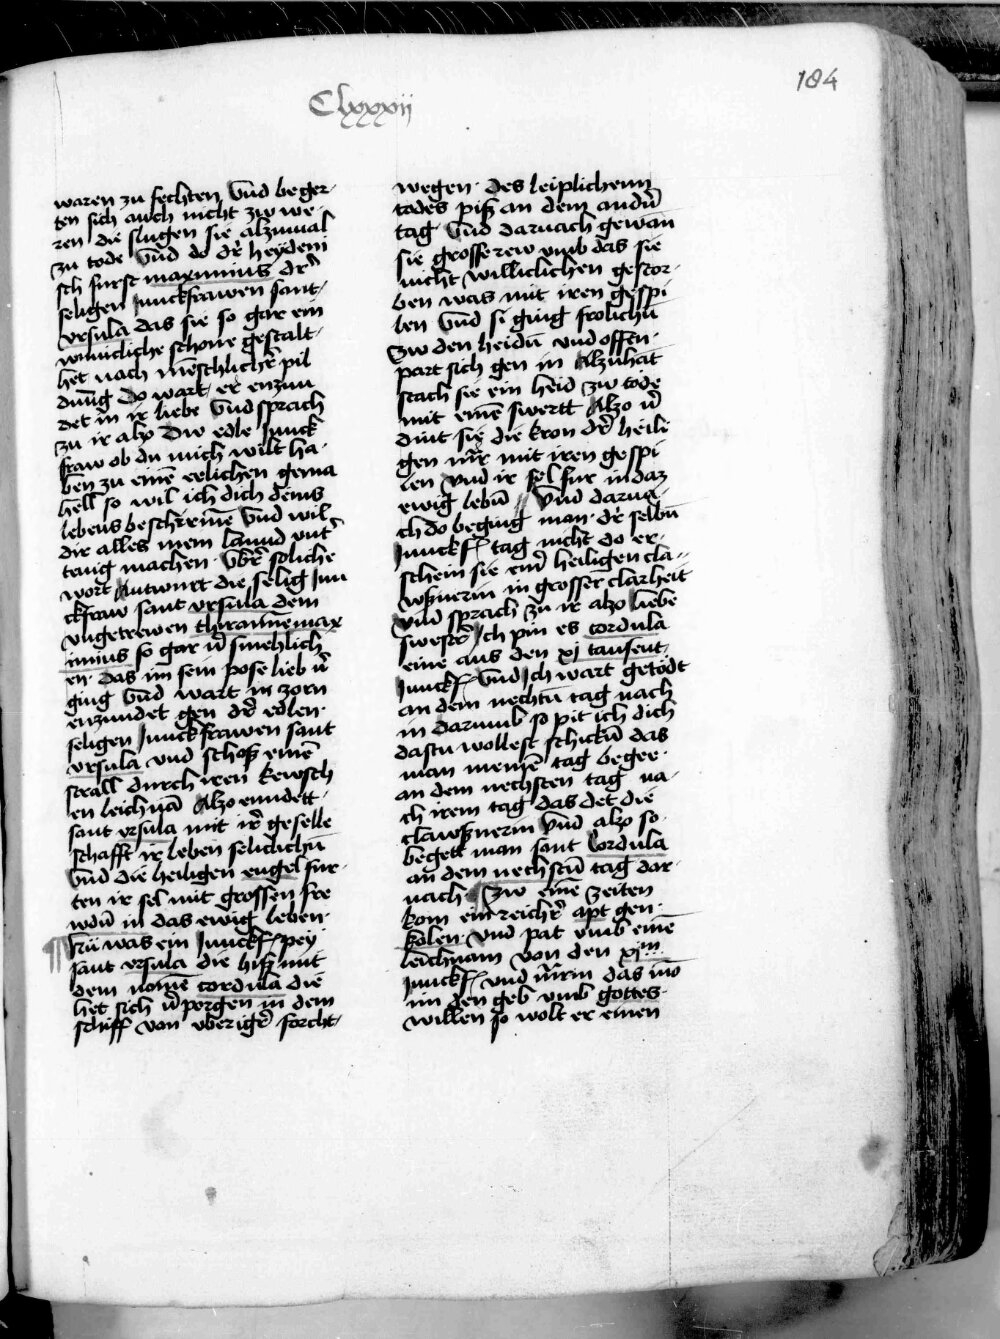 184
Clxxxij
waren zu fechten Vnd beger-
ten sich auch nicht zw we-
ren die slugen sie alzumal
zu tode Vnd do dr̄ heydeni
sch furst maximius dr̄
seligen Junckfrawen sant
vrsula das sie so gar ein
wunicliche schone gestalt
het nach mēschlichr̄ pil
dūng Do wart er enzun
det in ir liebe Vnd sprach
zu ir alzo Dw edle Junck
fraw ob du mich wilt ha-
ben zu einē erlichen gema
hell so wil ich dich deins
lebens beschirmē Vnd wil
dir alles mein lannd vnt̄
tenig machen Vbr̄ soliche
wort Antwurt die selig Jun
ckfraw sant vrsula dem
vngetrewen thirannē max
imius so gar v̄smehlich
en das im sein pose lieb v̄
ging Vnd wart in zorn
enzundet gen dr̄ edlen
seligen Junckfrawen sant
vrsula vnd schoß einē
strall durch iren kewsch
en leichnā Alzo enndett
sant vrsula mit ir̄ geselle
schafft ir leben seliclichn̄
Vnd die heiligen engel fur-
ten ir sel mit grossen fre
wdn̄ in das ewig leben
Nu was ein Junckf pey
sant vrsula die hiß mit
dem nomē cordula die
het sich v̄porgen in dem
schiff von vberigr̄ forcht
wegen des leiplichenn
todes piß an dem andn̄
tag Vnd darnach gewan
sie grosse rew vmb das sie
nicht williclichen gestor-
ben was mit iren gespi
len Vnd si ging frolichn̄
Zw den heidn̄ vnd offen-
part sich gen in Alzuhāt
stach sie ein heid zw tode
mit einē swertt Alzo v̄
dint sie die kron dr̄ heili
gen mr̄ mit iren gespi
len Vnd ir sel fur in daz
ewig lebn̄ Vnd darna
ch do beging man dr̄ selbn̄
Junckf tag nicht do er-
schein sie einr̄ heiligen cla-
wßnerin in grosser clarheit
vnd sprach zu ir alzo liebe
swestr̄ Ich pin es cordula
eine aus den xj tausent
Junckf Vnd Ich wart getodt
an dem nechtn̄ tag nach
in darumb so pit ich dich
dastu wollest schickn̄ das
man meinē tag begee
an dem nechsten tag na-
ch irem tag das det die
clawßnerin Vnd alzo so
begett man sant Cordula
an dem nechstn̄ tag dar
nach Zw einē zeiten
kom ein reichr̄ apt gen
kolen Vnd pat vmb einē
leichnam von den xjm
Junckf vnd mr̄rin das mō
im den geb vmb gottes
willen so wolt er einen